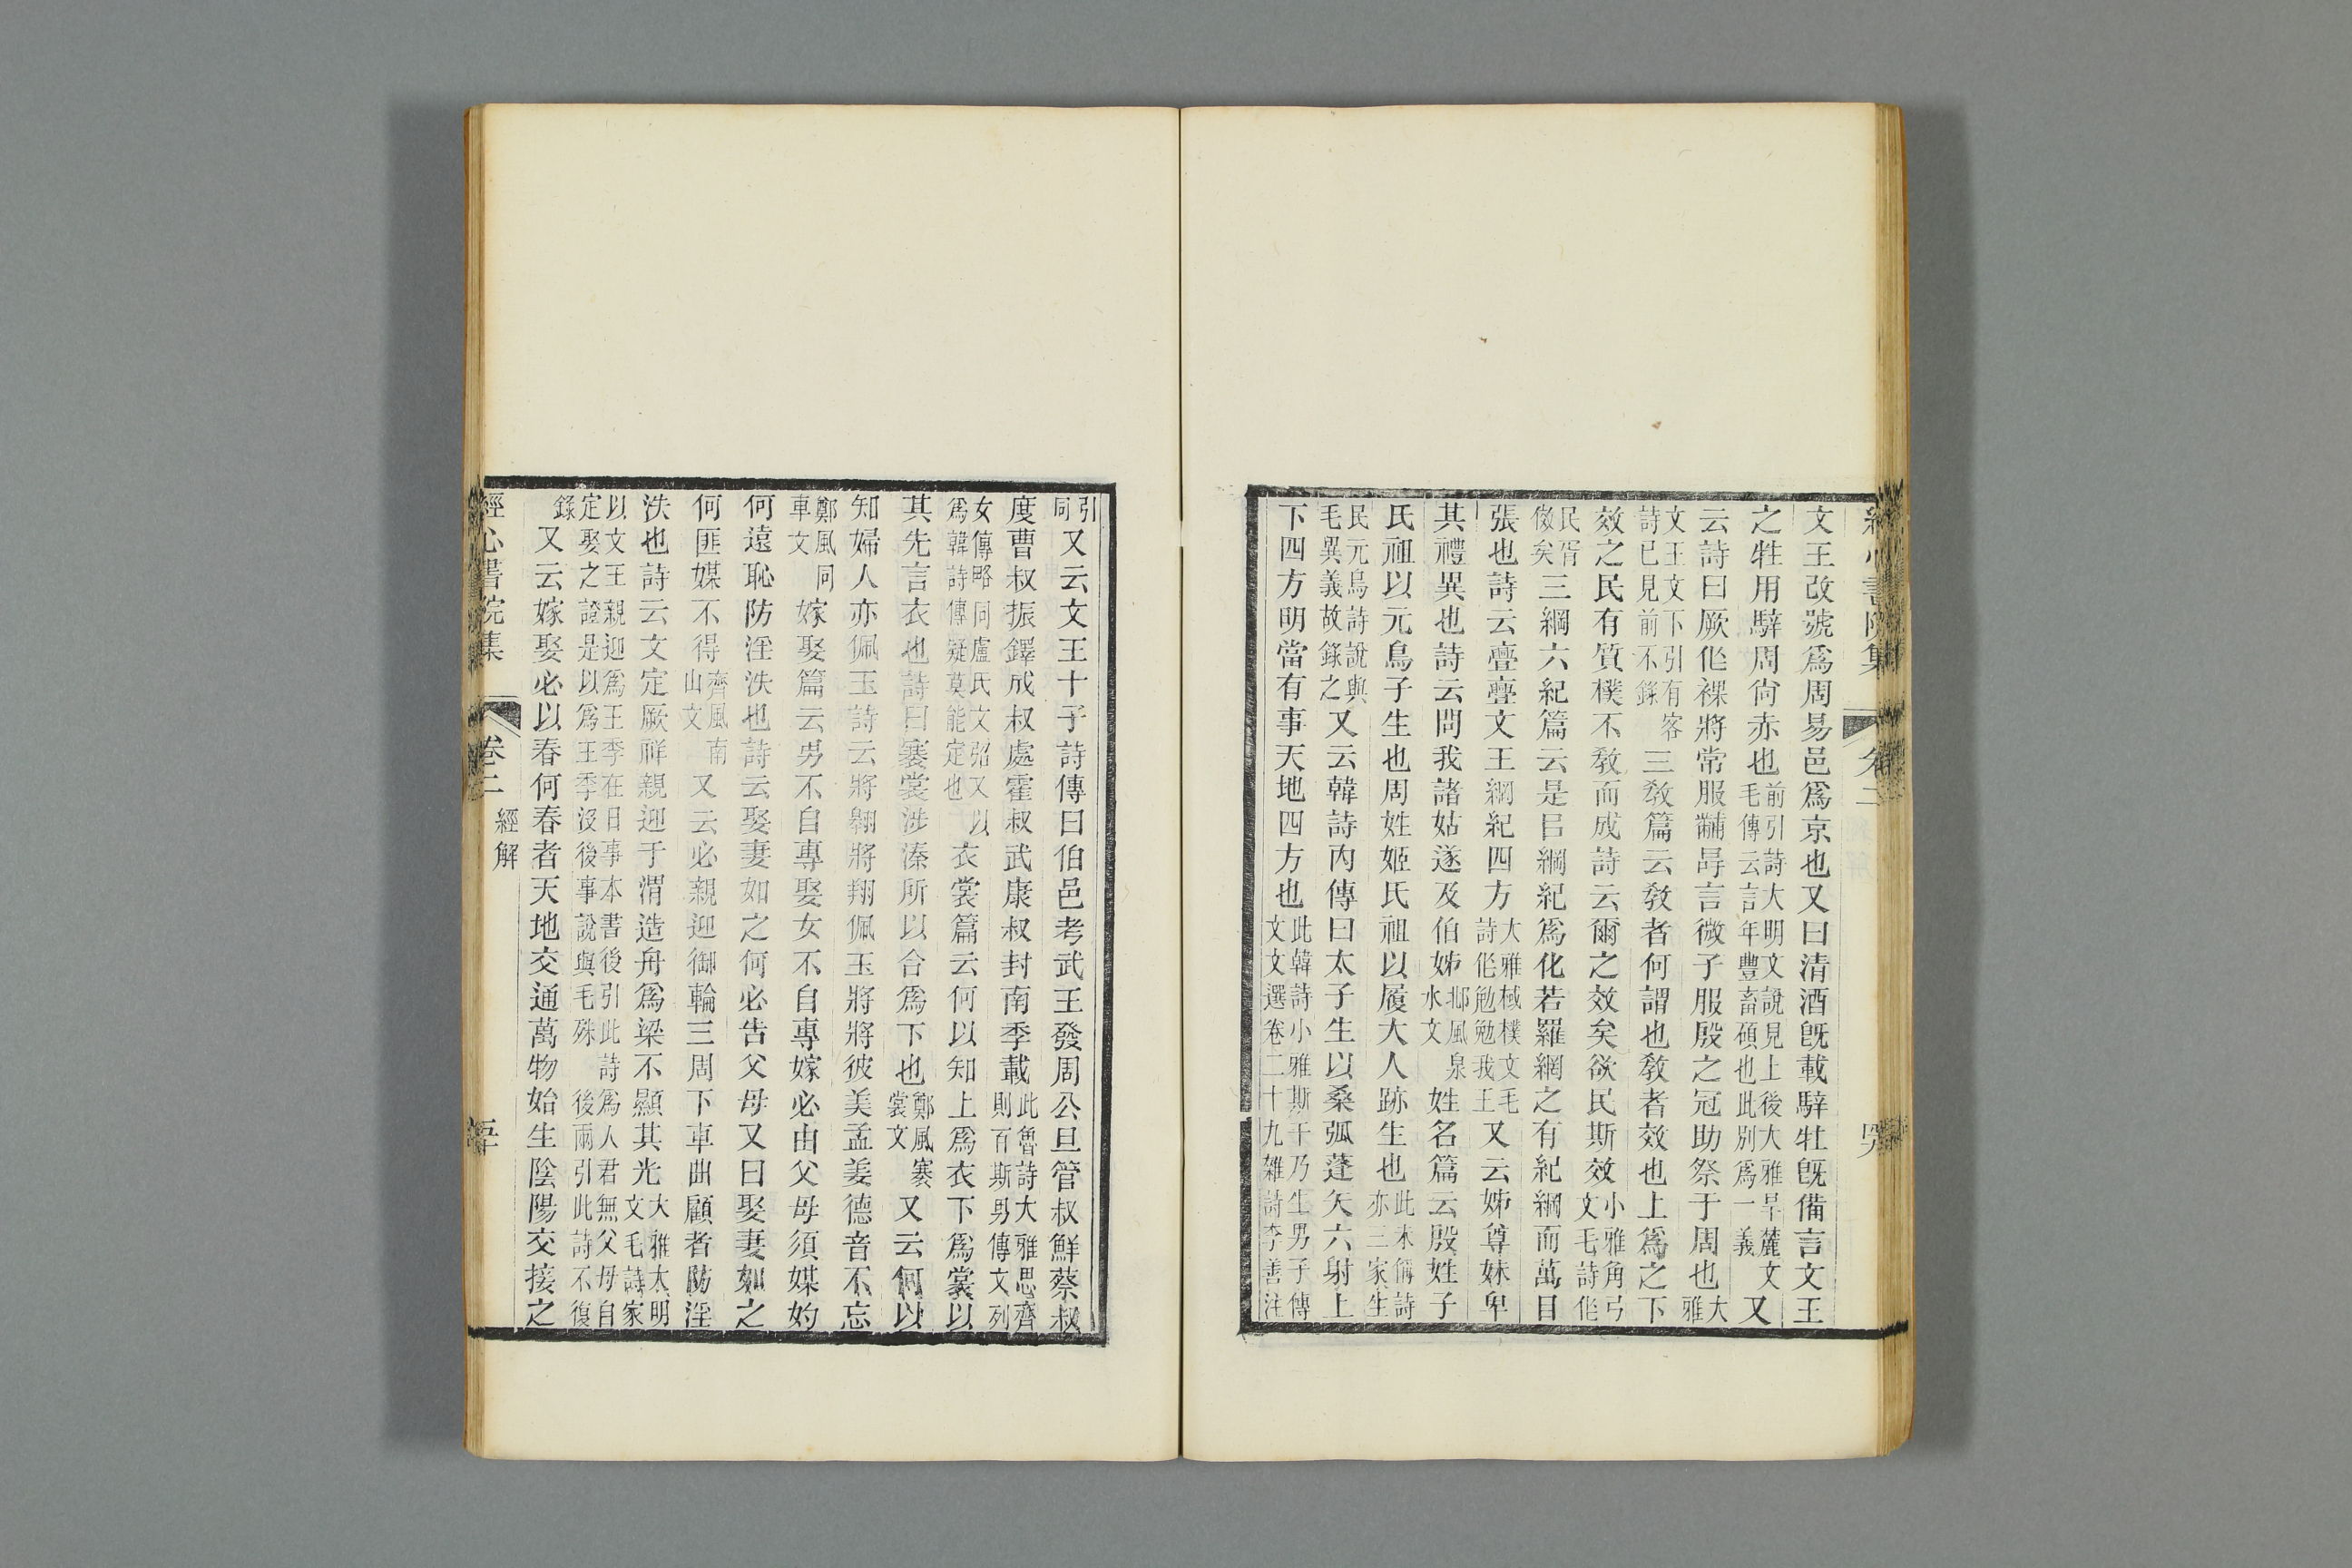 文王改號爲周易邑爲京也又曰清酒旣載騂牡旣備言文王
之牲用騂周尙赤也前引詩大明文說見上後大雅旱麓文毛傳云言年豐畜碩也此別爲一義又
云詩曰厥作祼將常服黼冔言微子服殷之冠助祭于周也大雅
文王文下引有客詩已見前不錄三敎篇云敎者何謂也敎者效也上爲之下
效之民有質樸不敎而成詩云爾之效矣欲民斯效小雅角弓文毛詩作
民胥傚矣三綱六紀篇云是㠯綱紀爲化若羅網之有紀綱而萬目
張也詩云亹亹文王綱紀四方大雅棫樸文毛詩作勉勉我王又云姊尊妹卑
其禮異也詩云問我諸姑遂及伯姊邶風泉水文姓名篇云殷姓子
氏祖以元鳥子生也周姓姬氏祖以履大人跡生也此未偁詩亦三家生
民元鳥詩說與毛異義故錄之又云韓詩內傳曰太子生以桑弧蓬矢六射上
下四方明當有事天地四方也此韓詩小雅斯干乃生男子傳文文選卷二十九雜詩李善注
引同又云文王十子詩傳曰伯邑考武王發周公旦管叔鮮蔡叔
度曹叔振鐸成叔處霍叔武康叔封南季載此魯詩大雅思齊則百斯男傳文列
女傳略同盧氏文弨又以爲韓詩傳疑莫能定也衣裳篇云何以知上爲衣下爲裳以
其先言衣也詩曰褰裳涉溱所以合爲下也鄭風褰裳文又云何以
知婦人亦佩玉詩云將翱將翔佩玉將將彼美孟姜德音不忘
鄭風同車文嫁娶篇云男不自專娶女不自專嫁必由父母須媒妁
何遠恥防淫泆也詩云娶妻如之何必告父母又曰娶妻如之
何匪媒不得齊風南山文又云必親迎御輪三周下車曲顧者防淫
泆也詩云文定厥祥親迎于渭造舟爲梁不顯其光大雅大明文毛詩家
以文王親迎爲王季在日事本書後引此詩爲人君無父母自定娶之證是以爲王季沒後事說與毛殊後兩引此詩不復
錄又云嫁娶必以春何春者天地交通萬物始生陰陽交接之
經心書院集
卷二
經解